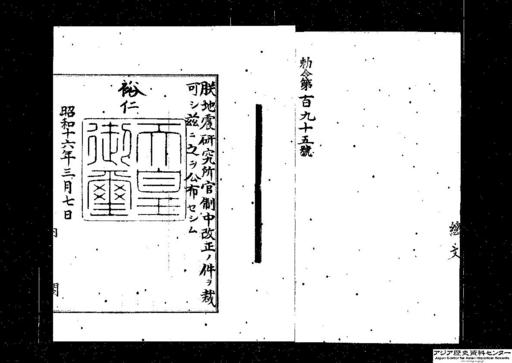 勅令第百九十五號
朕地震研究所官制中改正ノ件ヲ裁
可シ茲ニ之ヲ公布セシム
裕仁
天皇
御璽
昭和十六年三月七日
内閣
アジア歴史資料センター
Japan Center for Asian Historical Records